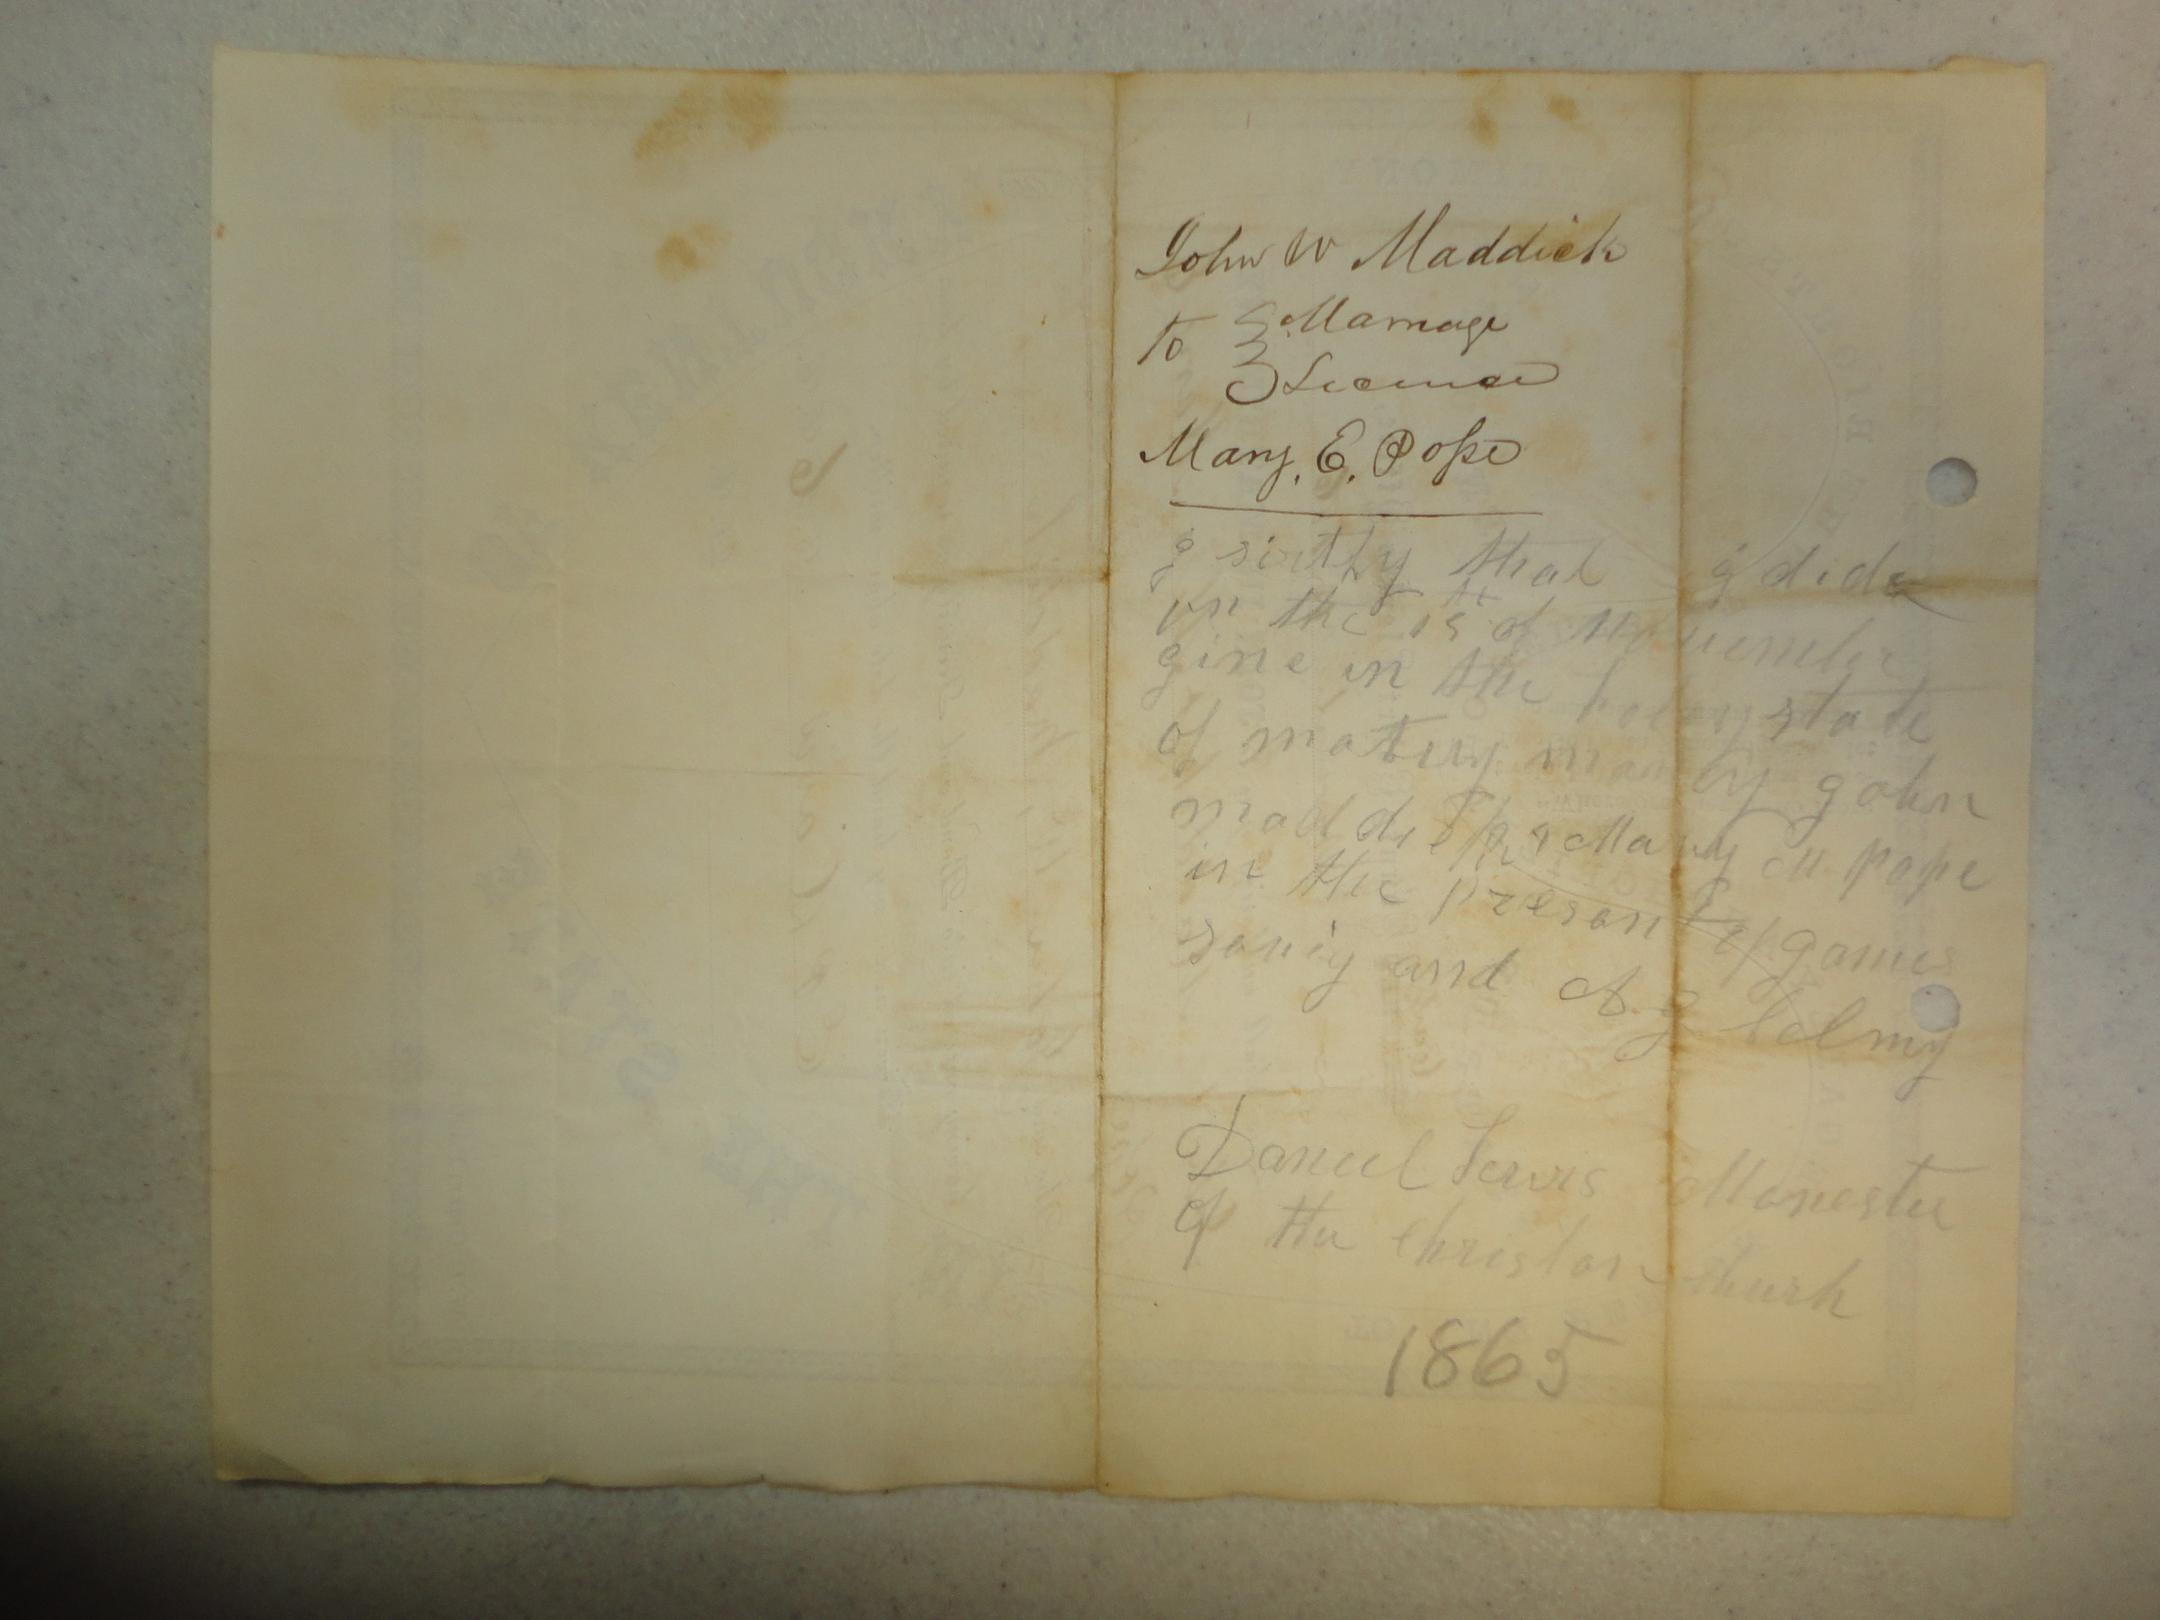 John W Maddick
To Marriage
License
Mary. E. Pope
g sirtfy that g did
on the 15 th of November
gine in the holey state
of matry many gohn
maddick & Mary M pope
in the presant of games
and A g
Daniel Lewis Manester
of the christan church
1865